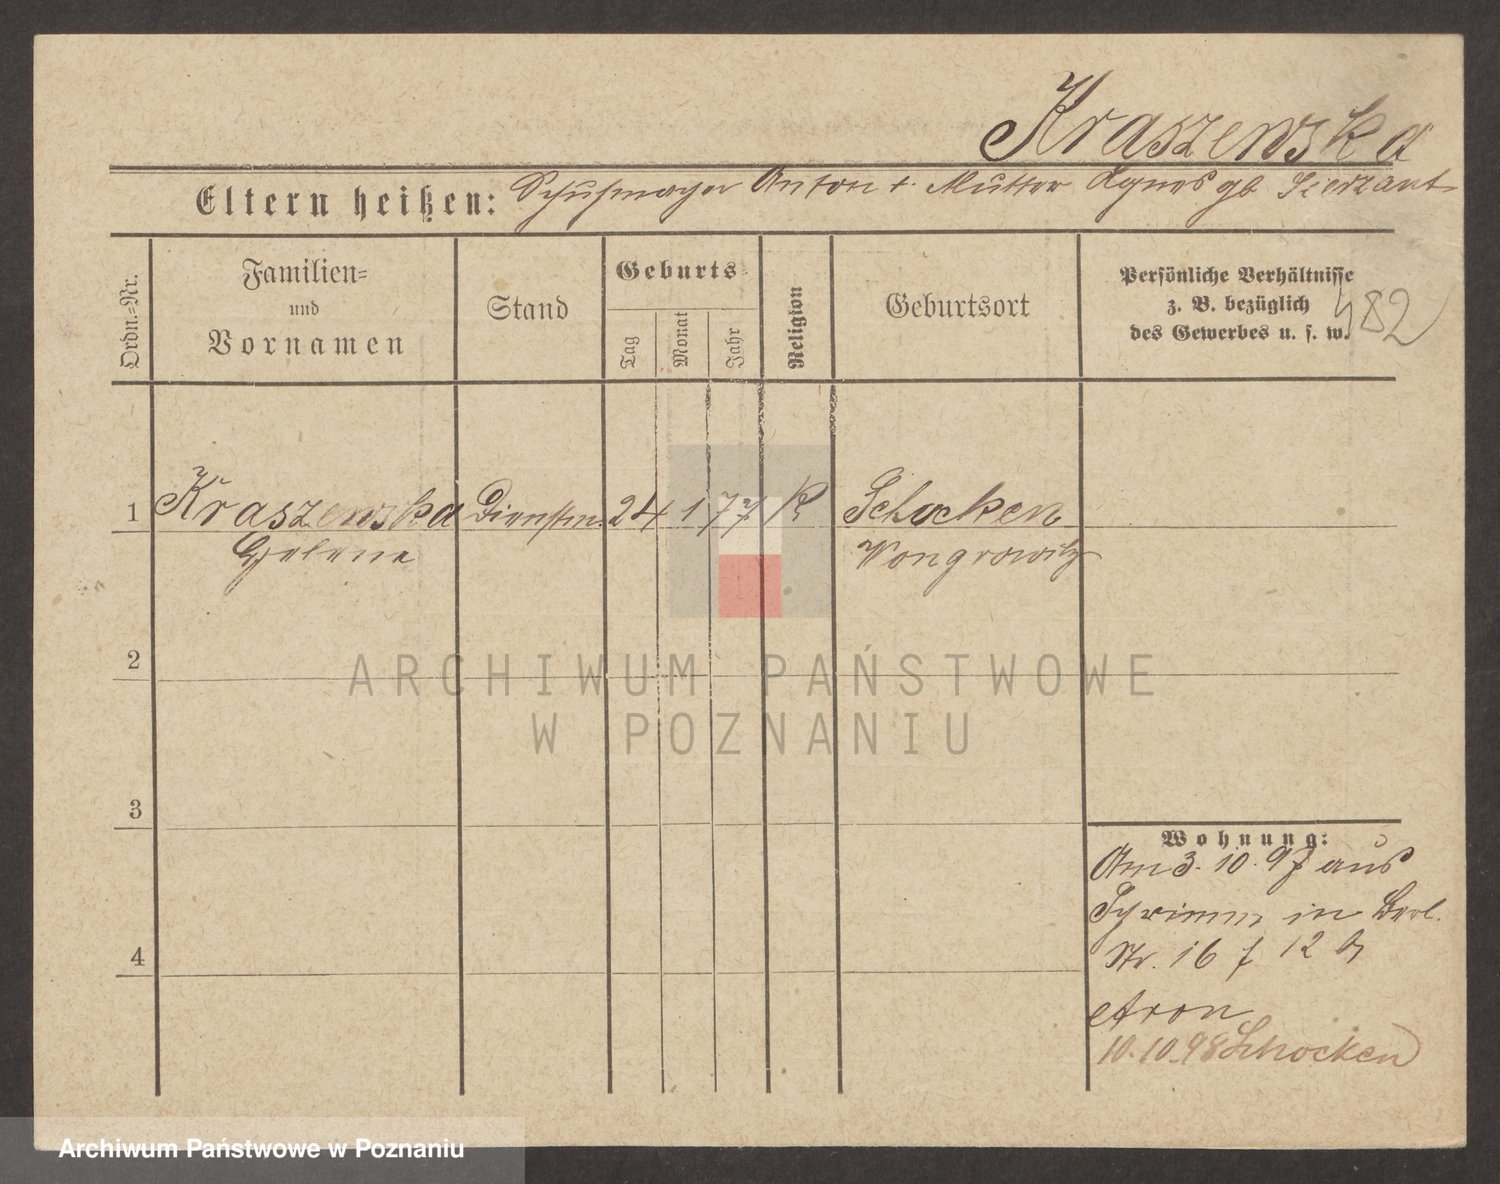 Kraszewska
Eltern heißen: Schuhmacher Anton t. Mutter Agnes gb
Ordn.=Nr.
Familien=
und
Vornamen
Stand
Geburts=
Tag
Monat
Jahr
Religion
Geburtsort
Persönliche Verhältnisse
z. B. bezüglich
des Gewerbes u. s. w.
482
1 Kraszewska Dienstm. 24 1 77 K Schocken
Helene Wongrowitz
2
3
4
Wohnung:
Am 3. 10. 97 aus
Schrimm in Berl.
Str. 16 f 12 b
Aron
10.10.98 Schocken
ARCHIWUM PAŃSTWOWE
W POZNANIU
Archiwum Państwowe w Poznaniu